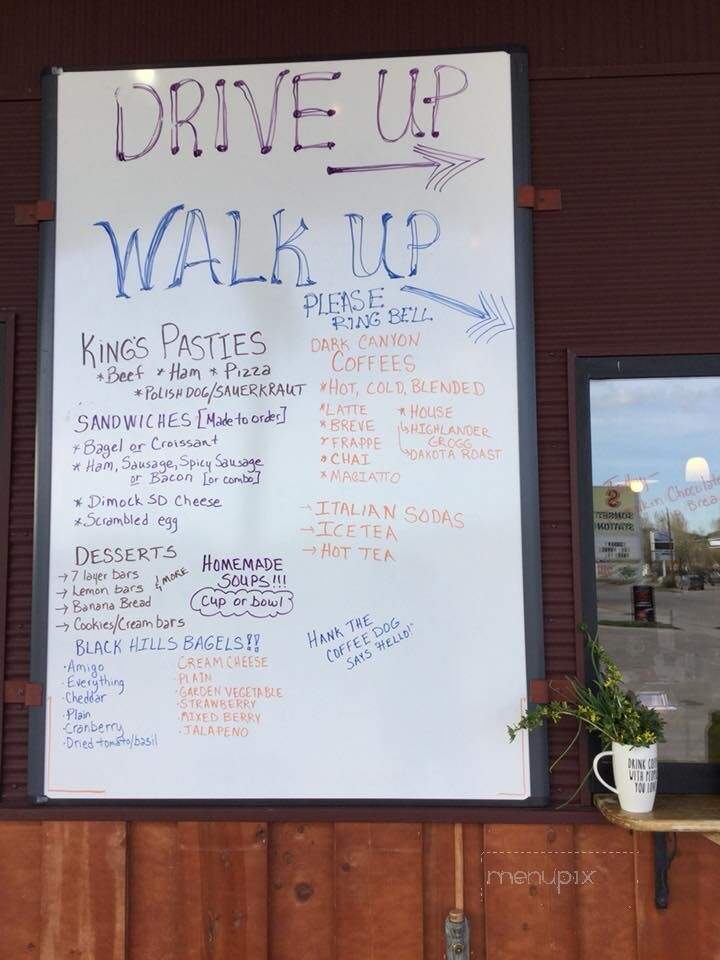 DRIVE UP
WALK UP
PLEASE
RING BELL
KING'S PASTIES
*Beef *Ham *Pizza
*POLISH DOG/SAUERKRAUT
SANDWICHES [Made to order]
* Bagel or Croissant
* Ham, Sausage, Spicy Sausage
or Bacon [or combo]
* Dimock SD Cheese
* Scrambled egg
DESSERTS
→ 7 layer bars
→ Lemon bars
→ Banana Bread
→ Cookies/Cream bars
& MORE
HOMEMADE
SOUPS!!!
Cup or bowl
DARK CANYON
COFFEES
*HOT, COLD, BLENDED
*LATTE
*BREVE
*FRAPPE
*CHAI
*MACIATTO
*HOUSE
HIGHLANDER
GROGG
DAKOTA ROAST
→ITALIAN SODAS
→ICE TEA
→HOT TEA
HANK THE
COFFEE DOG
SAYS "HELLO!"
BLACK HILLS BAGELS!!
·Amigo
·Everything
·Cheddar
·Plain
·Cranberry
·Dried tomato/basil
CREAM CHEESE
·PLAIN
·GARDEN VEGETABLE
·STRAWBERRY
·MIXED BERRY
·JALAPENO
Chocolate
DRINK
WITH
YOU
menupix